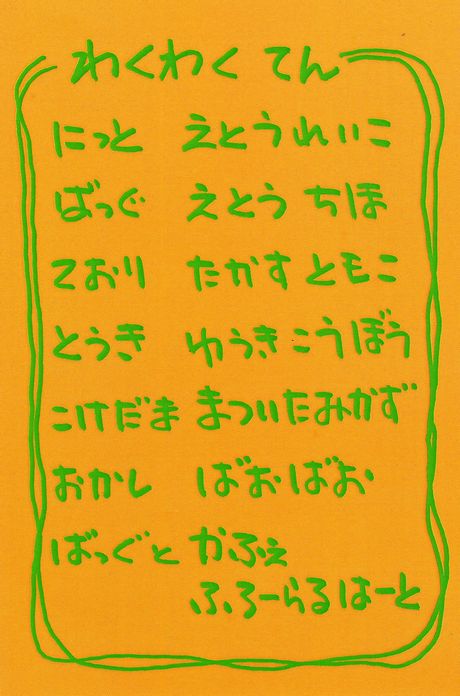 わくわく てん
にっと えとうれいこ
ばっぐ えとう ちほ
ており たかす ともこ
とうき ゆうきこうぼう
こけだま まついたみかず
おかし ばおばお
ばっぐと かふぇ
ふろーらるはーと